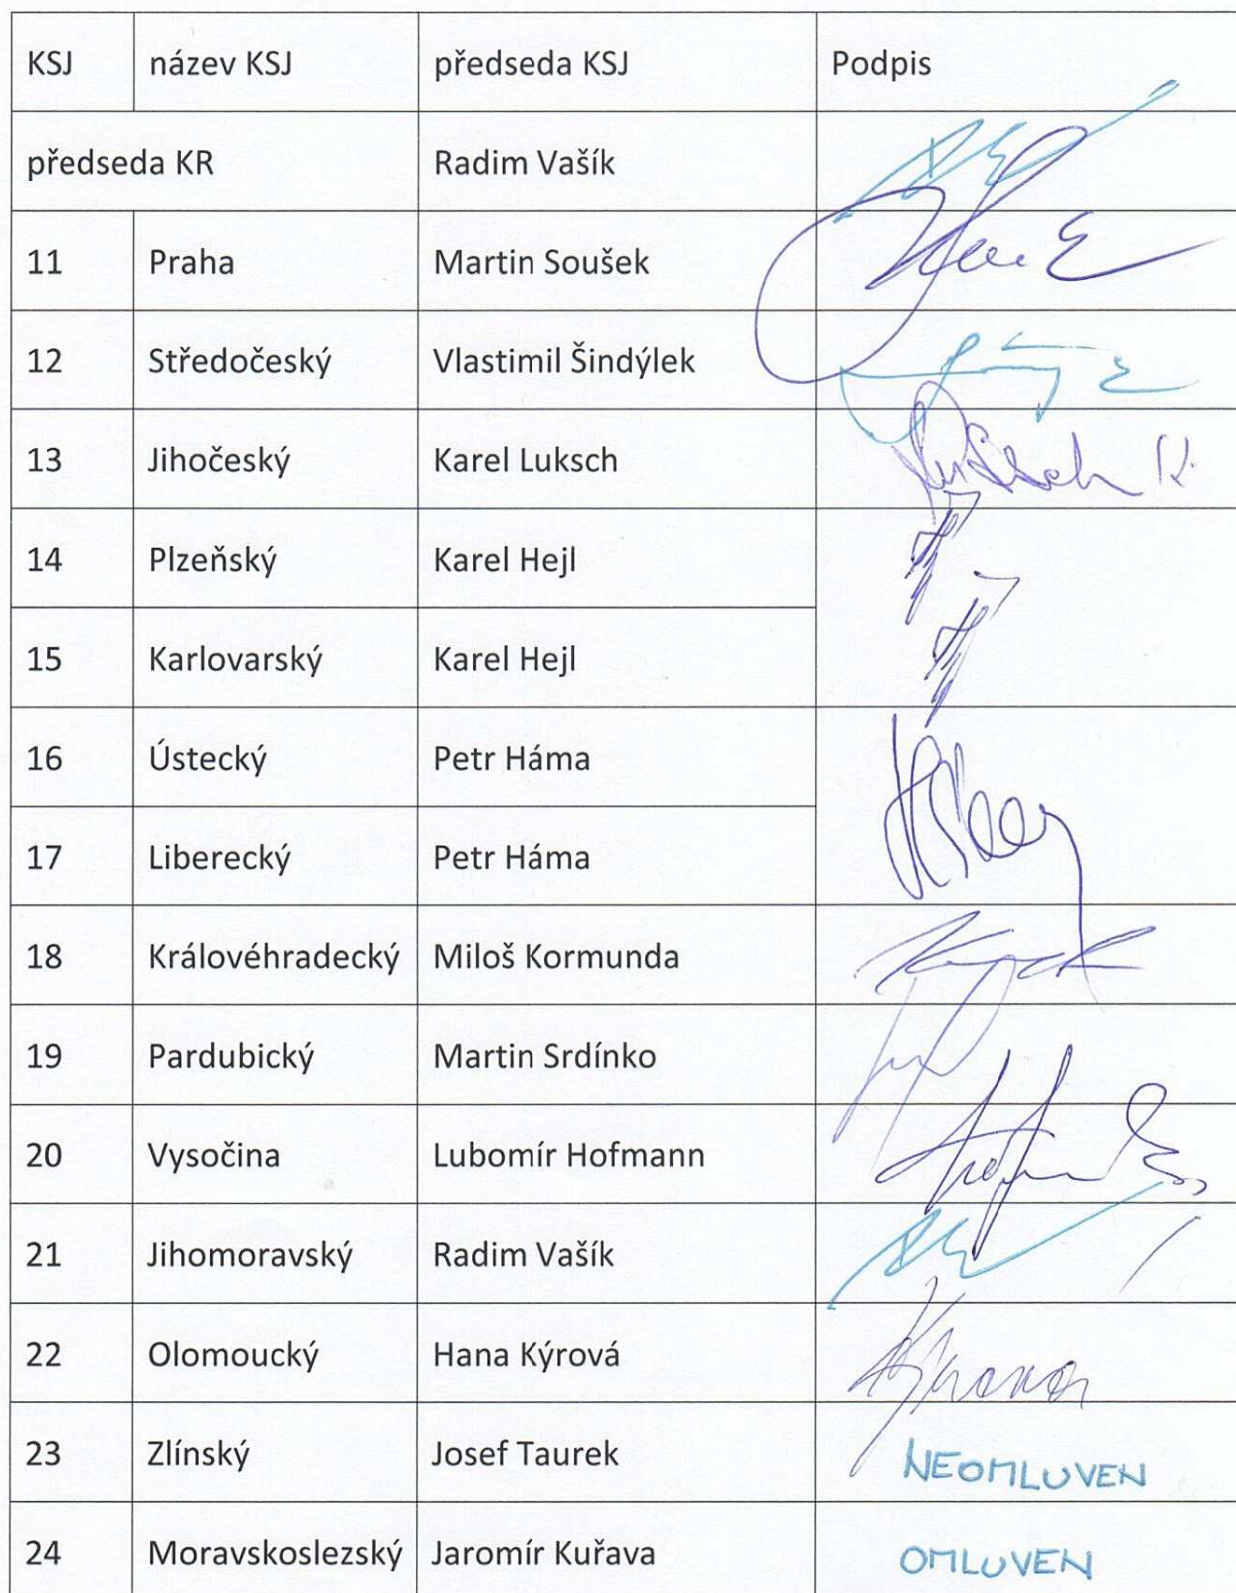 KSJ název KSJ předseda KSJ Podpis
předseda KR Radim Vašík
11 Praha Martin Soušek
12 Středočeský Vlastimil Šindýlek
13 Jihočeský Karel Luksch
14 Plzeňský Karel Hejl
15 Karlovarský Karel Hejl
16 Ústecký Petr Háma
17 Liberecký Petr Háma
18 Královéhradecký Miloš Kormunda
19 Pardubický Martin Srdínko
20 Vysočina Lubomír Hofmann
21 Jihomoravský Radim Vašík
22 Olomoucký Hana Kýrová
23 Zlínský Josef Taurek NEOMLUVEN
24 Moravskoslezský Jaromír Kuřava OMLUVEN